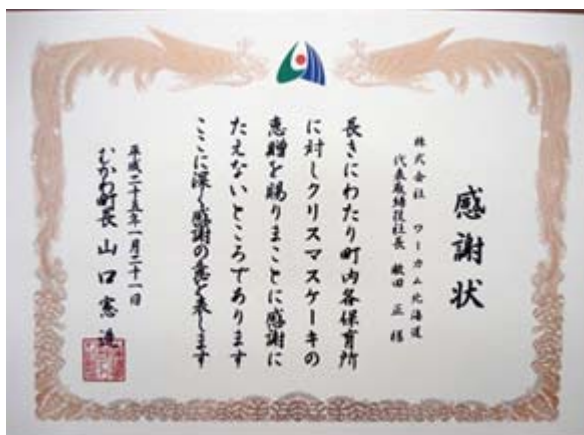 感謝状
株式会社 ワーカム北海道
代表取締役社長 敏田 正 様
長きにわたり町内各保育所
に対しクリスマスケーキの
恵贈を賜りまことに感謝に
たえないところであります
ここに深く感謝の意を表します
平成二十五年一月二十一日
むかわ町長 山口憲造